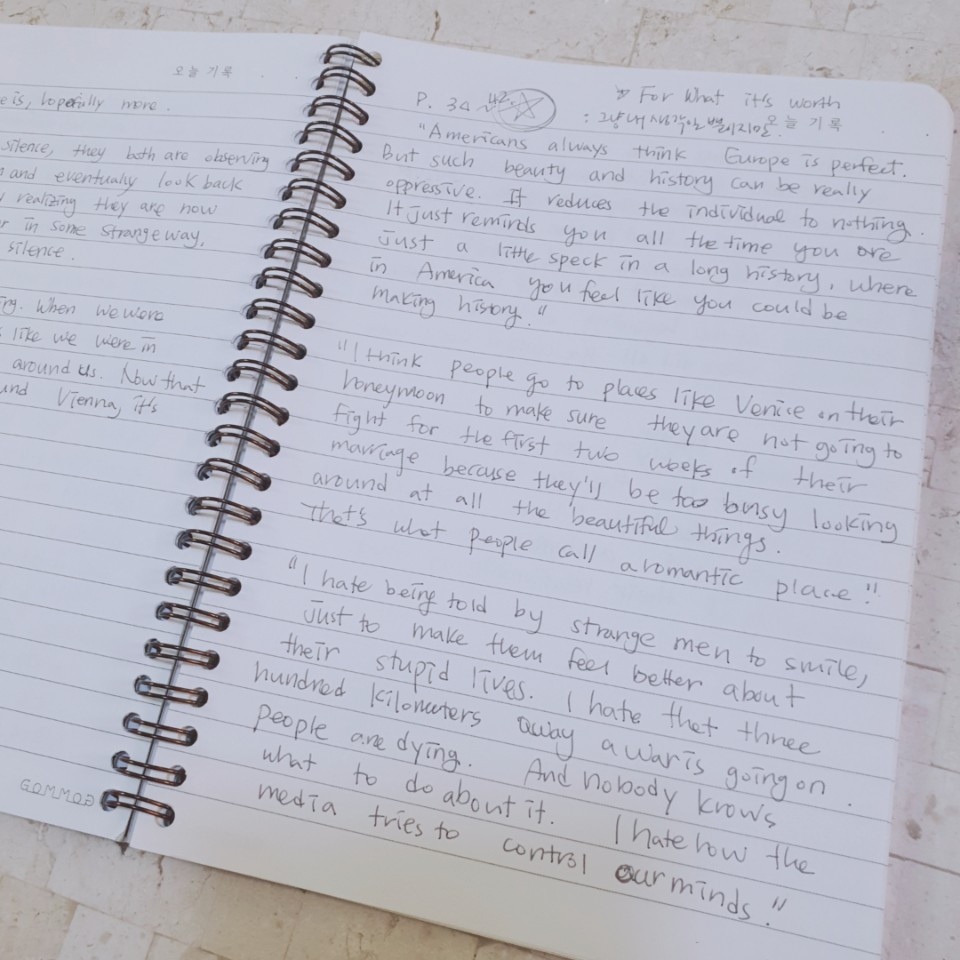 오늘 기록
e is, hopefully more.
silence, they both are observing
and eventually look back
realizing they are now
in some strange way,
silence.
ing. When we were
like we were in
around us. Now that
und Vienna, it's
GOMMOD
P. 34 ~ 42.
※ For What it's worth
: 그냥 내 생각일 뿐이지만.
오늘 기록
"Americans always think Europe is perfect.
But such beauty and history can be really
oppressive. It reduces the individual to nothing.
It just reminds you all the time you are
just a little speck in a long history, where
in America you feel like you could be
making history."
"I think people go to places like Venice on their
honeymoon to make sure they are not going to
fight for the first two weeks of their
marriage because they'll be too busy looking
around at all the beautiful things.
That's what people call a romantic place."
"I hate being told by strange men to smile,
just to make them feel better about
their stupid lives. I hate that three
hundred kilometers away a war is going on.
people are dying. And nobody knows
what to do about it. I hate how the
media tries to control our minds."